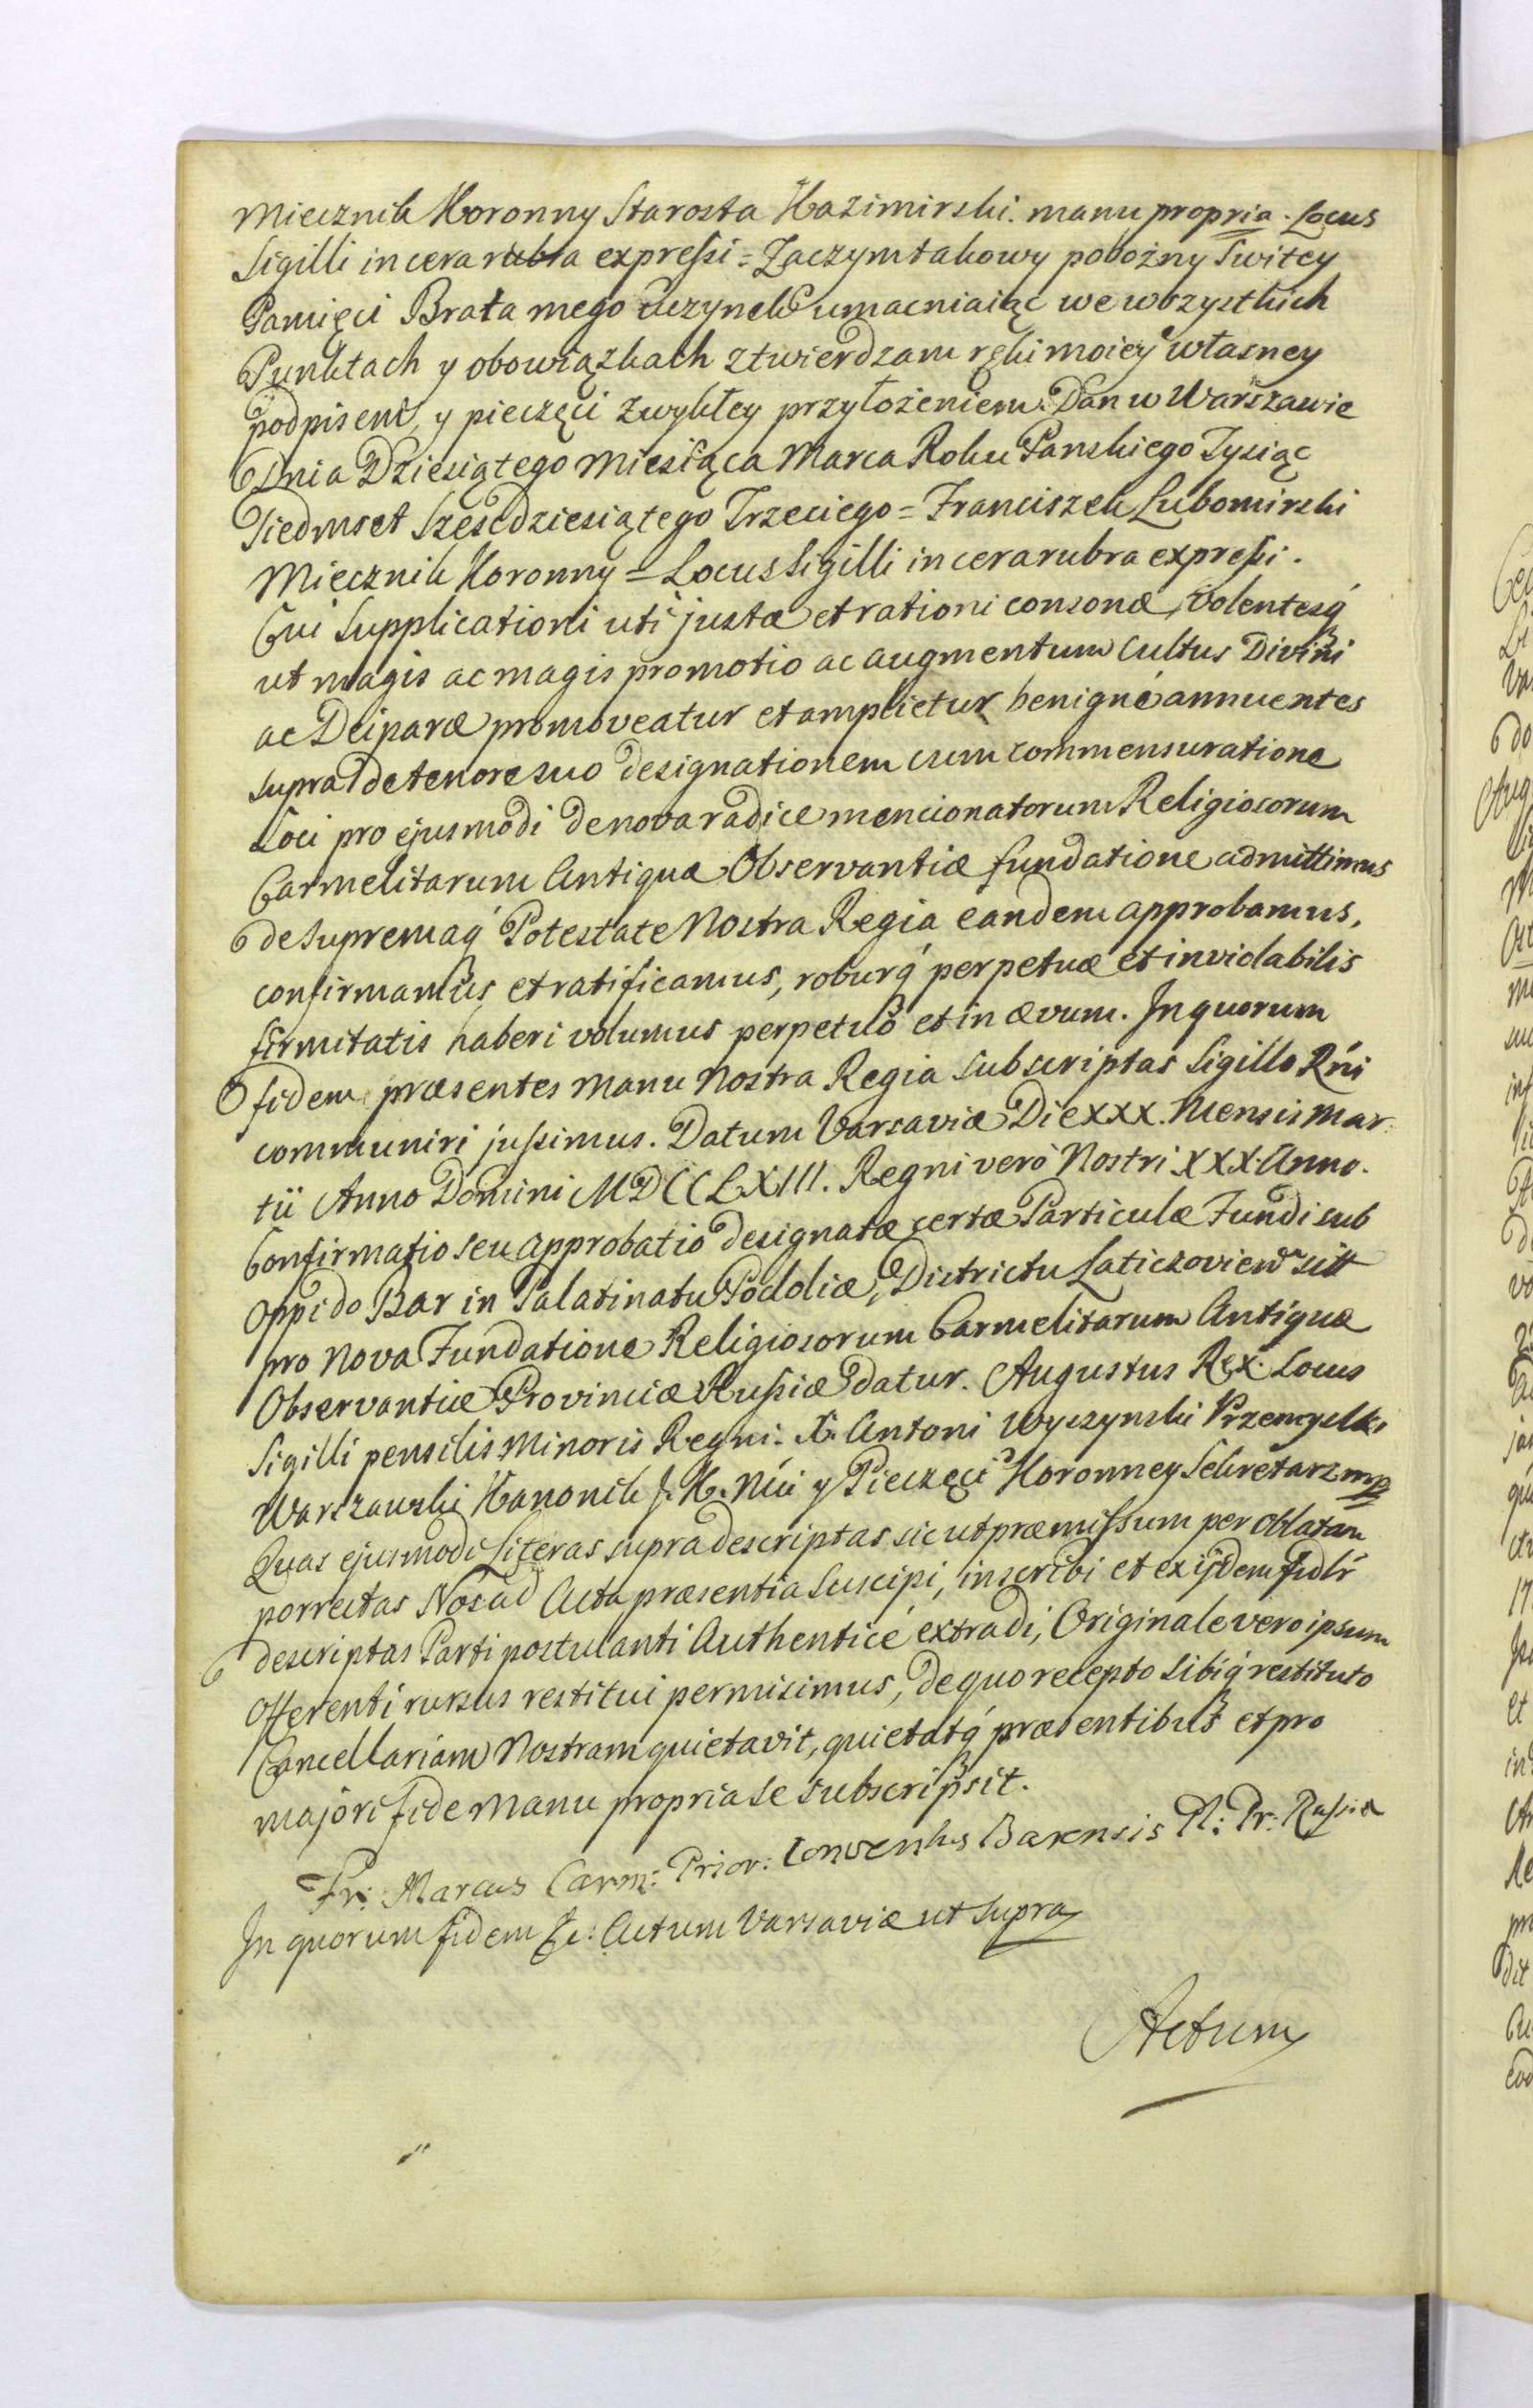 Miecznik Koronny Starosta Kazimirski. manu propria. Locus
Sigilli in cera rubra expressi = Zaczym takowy pobożny Switey
Pamięci Brata mego uczynek umacniaiąc we wszystkich
Punktach y obowiązkach ztwierdzam ręki moiey własney
podpisem, y pieczęci zwykłey przyłożeniem. Dan w Warszawie
Dnia Dziesiątego Miesiąca Marca Roku Panskiego Tysiąc
Siedmset Szescdziesiątego Trzeciego = Franciszek Lubomirski
Miecznik Koronny = Locus Sigilli in cera rubra expressi.
Cui Supplicationi uti justæ et rationi consonæ, volentesq́
ut magis ac magis promotio ac augmentum cultus Divini
ac Deiparæ promoveatur et amplietur benigné annuentes
supra de tenore suo designationem cum commensuratione
Loci pro ejusmodi de nova radice mencionatorum Religiosorum
Carmelitarum Antiquæ Observantiæ fundatione admittimus
de Supremaq́ Potestate Nostra Regia eandem approbamus,
confirmamus et ratificamus, roburq́ perpetuæ et inviolabilis
firmitatis haberi volumus perpetuò et in ævum. In quorum
fidem præsentes manu Nostra Regia Subscriptas Sigillo Rńi
communiri jussimus. Datum Varsaviæ Die XXX. Mensis Mar
tii Anno Domini MDCCLXIII. Regni verò Nostri XXX. Anno.
Confirmatio seu approbatio designatæ certæ Particulæ Fundi sub
Oppido Bar in Palatinatu Podoliæ, Districtu Laticzovien sitt
pro Nova Fundatione Religiosorum Carmelitarum Antiquæ
Observantiæ Provinciæ Russiæ datur. Augustus Rex. Locus
Sigilli pensilis Minoris Regni. X. Antoni Wyczynski Przemyslki
Warszawski Kanonik J. K. Mći y Pieczęci Koronney Sekretarz mp
Quas ejusmodi Literas supra descriptas sicut præmissum per oblatam
porrectas Nos ad Acta præsentia suscipi, inscribi et ex ijsdem fidlr
descriptas Parti postulanti Authenticé extradi, Originale vero ipsum
Offerenti rursus restitui permisimus, de quo recepto sibiq́ restituto
Cancellariam Nostram quietavit, quietatq́ præsentibus et pro
majori fide Manu propria se subscripsit.
Fr: Marcus Carm: Prior: Conventus Barensis Pl: Pr: Russiæ
In quorum fidem &c: Actum Varsaviæ ut supra
Actum